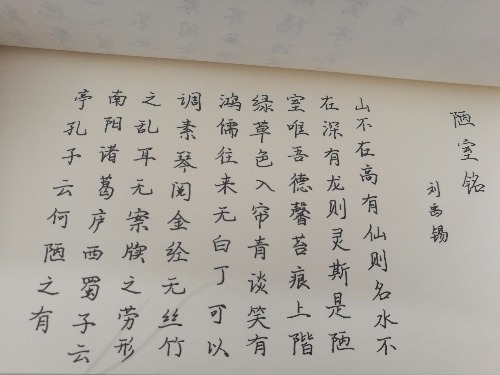 陋室铭
刘禹锡
山不在高有仙则名水不
在深有龙则灵斯是陋
室唯吾德馨苔痕上阶
绿草色入帘青谈笑有
鸿儒往来无白丁可以
调素琴阅金经无丝竹
之乱耳无案牍之劳形
南阳诸葛庐西蜀子云
亭孔子云何陋之有